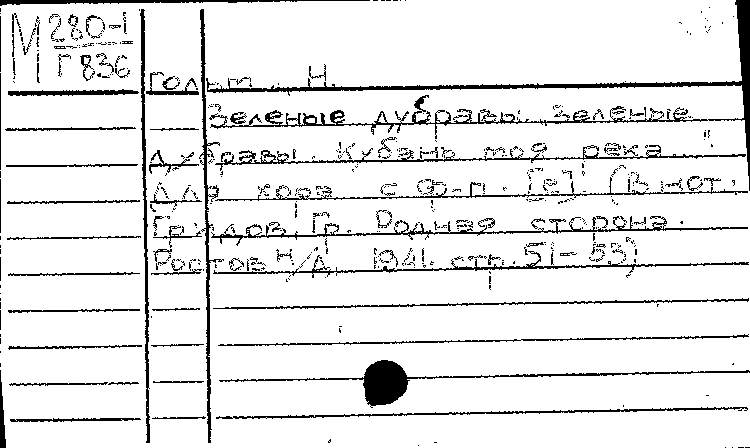 М 280-1
Г 836
Гольт, Н.
Зеленые дубравы. "Зеленые
дубравы. Кубань моя река..."
Для хора с ф-п. [е]. (В нот.
Гридов, Гр. Родная сторона.
Ростов н/Д, 1941. стр. 51-53)